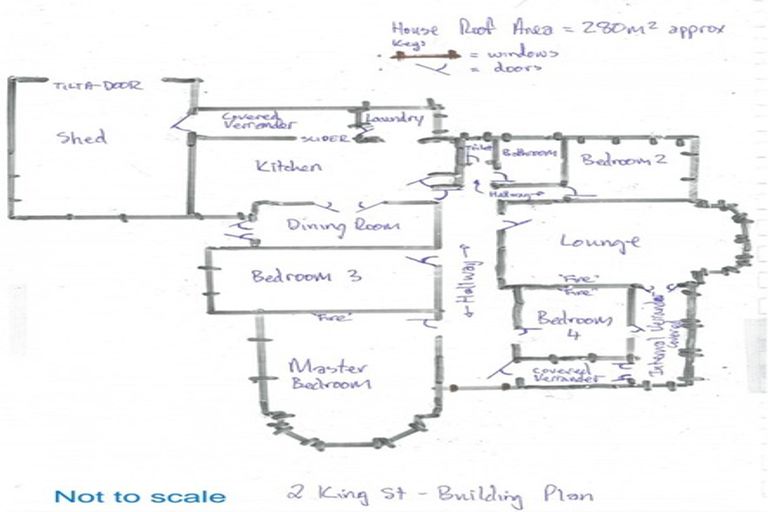 House Roof Area = 280m² approx
Keys
= windows
= doors
TILTA-DOOR
Shed
Covered
Verrander
Laundry
SLIDER
Kitchen
Toilet
Bathroom
Bedroom 2
Hallway
Dining Room
Lounge
Hallway
Bedroom 3
"Fire"
"Fire"
"Fire"
Bedroom
4
Internal Verrander
Covered
Master
Bedroom
Covered
Verrander
Not to scale
2 King St - Building Plan